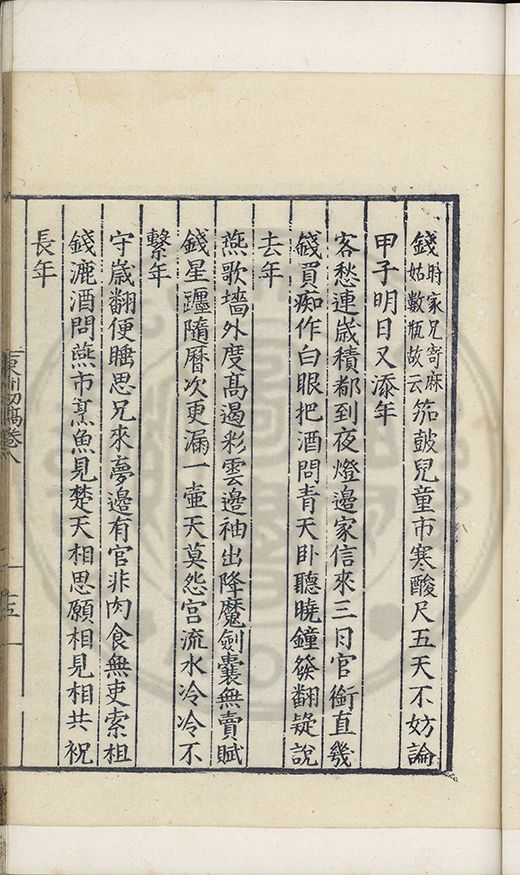 錢時家兄寄麻姑數瓶故云笳鼓兒童市寒酸尺五天不妨論
甲子明日又添年
客愁連歲積都到夜燈邊家信來三日官銜直幾
錢買痴作白眼把酒問青天卧聽曉鐘發翻疑說
去年
燕歌墻外度髙遏彩雲邊袖出降魔劍囊無賣賦
錢星躔隨曆次更漏一壺天莫怨宫流水冷冷不
繫年
守歲翻便睡思兄來夢邊有官非肉食無吏索租
錢漉酒問燕市烹魚見楚天相思願相見相共祝
長年
初稿卷八